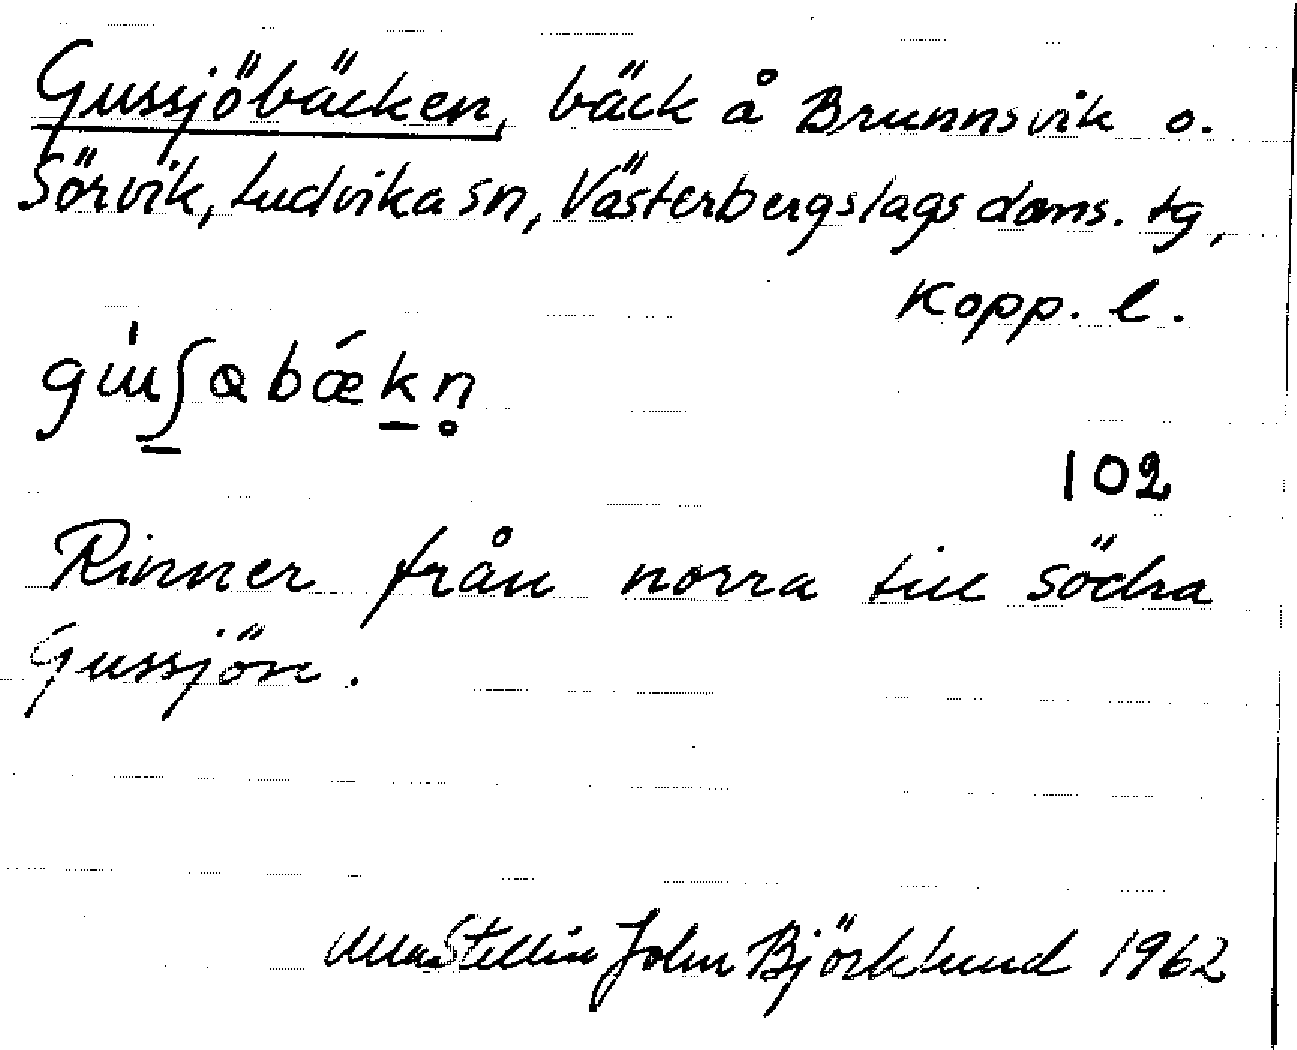 Gussjöbäcken, bäck å Brunnsvik o.
Sörvik, Ludvika sn, Västerbergslags doms. tg,
Kopp. l.
gu̍ʃɷbǽkn̥
102
Rinner från norra till södra
Gussjön.
Ulla Stellin John Björklund 1962